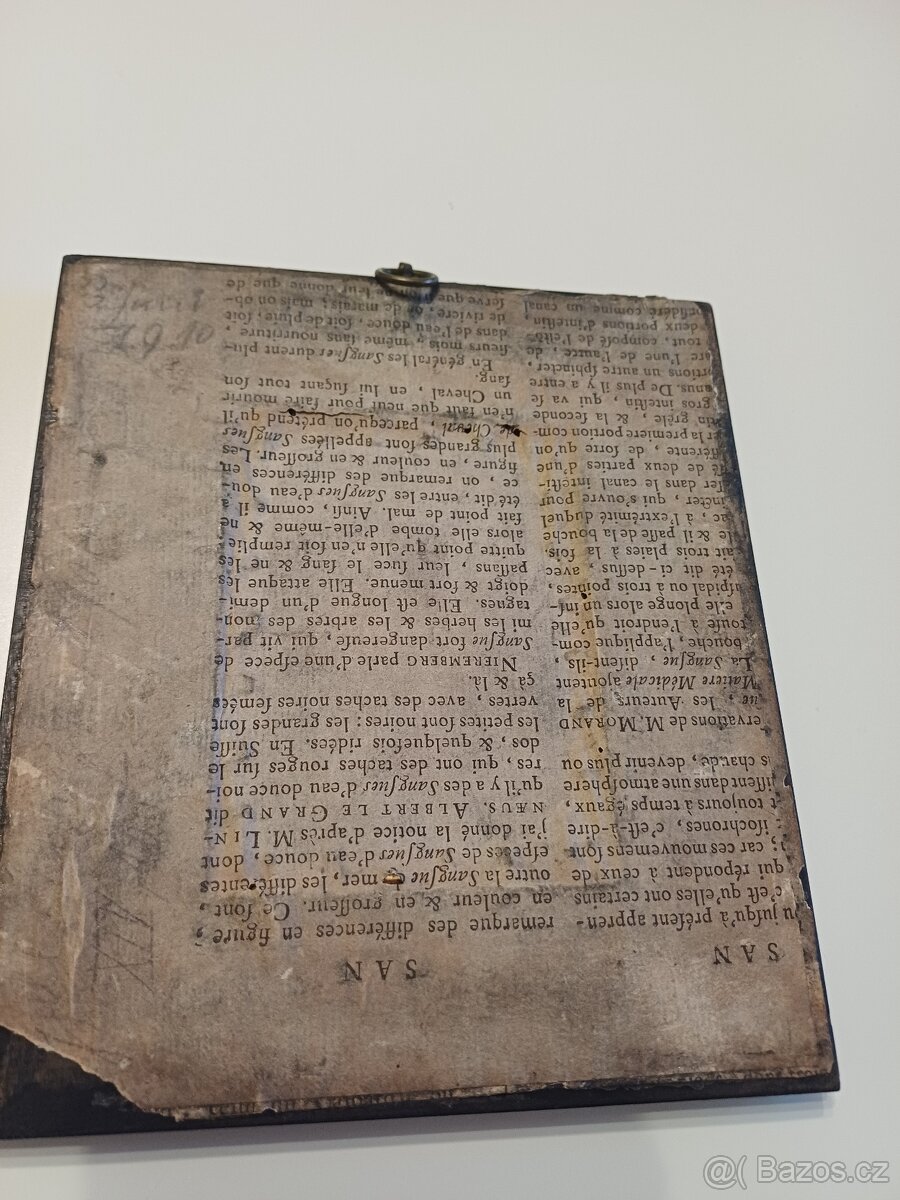 SAN
u juſqu'à préſent appren-
c'eſt qu'elles ont certains
qui répondent à ceux de
; car ces mouvemens ſont
iſochrones, c'eſt-à-dire
t toujours à temps égaux,
iſſent dans une atmoſphere
s chaude, devenir plus ou
ervations de M. MORAND
ue, les Auteurs de la
Matiere Médicale ajoutent
La Sangſue, diſent-ils,
bouche, l'applique com-
toute à l'endroit qu'elle
elle plonge alors un inſ-
à trois pointes,
été dit ci-deſſus, avec
ait trois plaies à la fois.
le & il paſſe de la bouche
ſac, à l'extrémité duquel
incter, qui s'ouvre pour
ler dans le canal inteſti-
ſé de deux parties d'une
férente, de ſorte qu'on
er la premiere portion com-
tin grêle, & la ſeconde
gros inteſtin, qui va ſe
anus. De plus il y a entre
ortions un autre ſphincter,
are l'une de l'autre, de
tout, compoſé de l'eſto-
deux portions d'inteſtin
onſidéré comme un canal
SAN
remarque des différences en figure,
en couleur & en groſſeur. Ce ſont,
outre la Sangſue mer, les différentes
eſpéces de Sangſues d'eau douce, dont
j'ai donné la notice d'après M. LIN-
NÆUS. ALBERT LE GRAND dit
qu'il y a des Sangſues d'eau douce noi-
res, qui ont des taches rouges ſur le
dos, & quelquefois ridées. En Suiſſe
les petites ſont noires: les grandes ſont
vertes, avec des taches noires ſemées
çà & là.
NIEREMBERG parle d'une eſpece de
Sangſue fort dangereuſe, qui vit par-
mi les herbes & les arbres des mon-
tagnes. Elle eſt longue d'un demi-
doigt & fort menue. Elle attaque les
paſſans, leur ſuce le ſang & ne les
quitte point qu'elle n'en ſoit remplie:
alors elle tombe d'elle-même & ne
fait point de mal. Ainſi, comme il a
été dit, entre les Sangſues d'eau dou-
ce, on remarque des différences en
figure, en couleur & en groſſeur. Les
plus grandes ſont appellées Sangſues
de Cheval, parcequ'on prétend qu'il
n'en faut que neuf pour faire mourir
un Cheval, en lui ſuçant ſon tout
ſang.
En général les Sangſues durent plu-
ſieurs mois, même ſans nourriture,
dans de l'eau douce, ſoit de pluie, ſoit
de riviere, ou de marais; mais on ob-
ſerve que leur donne que de
@( Bazos.cz